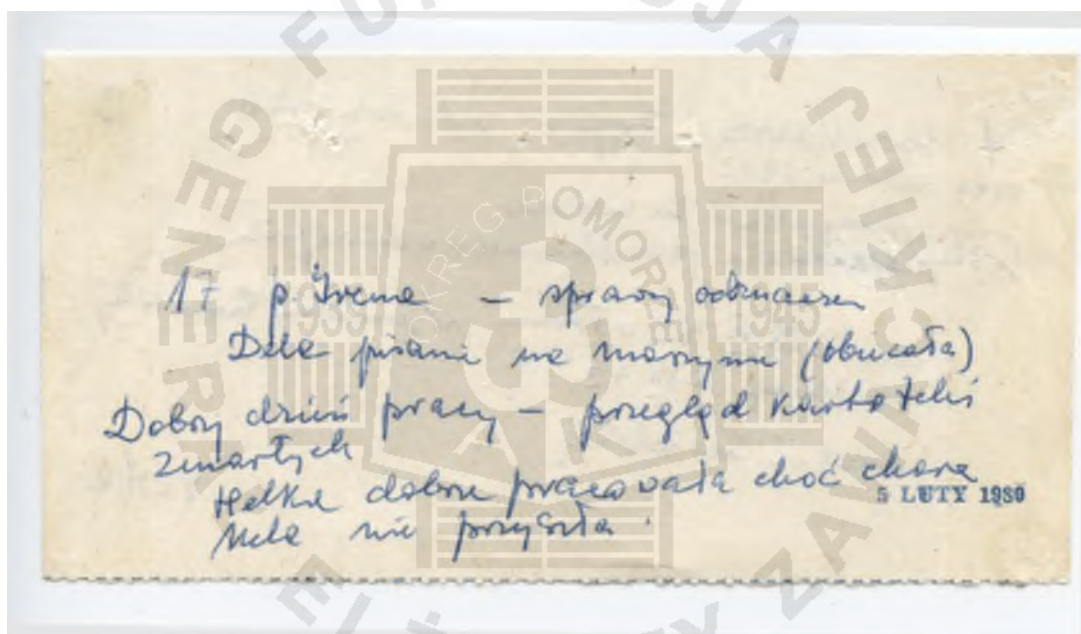 17 p. Irena – sprawy odznaczeń
Dela pisanie na maszynie (obiecała)
Dobry dzień pracy – przegląd kartoteki
zmarłych
Helka dobrze pracowała choć chora
5 LUTY 1980
Mela nie przyszła.
GENERAŁ
OKRĘG POMORZE
1939 1945
AK
ZAWACKIEJ